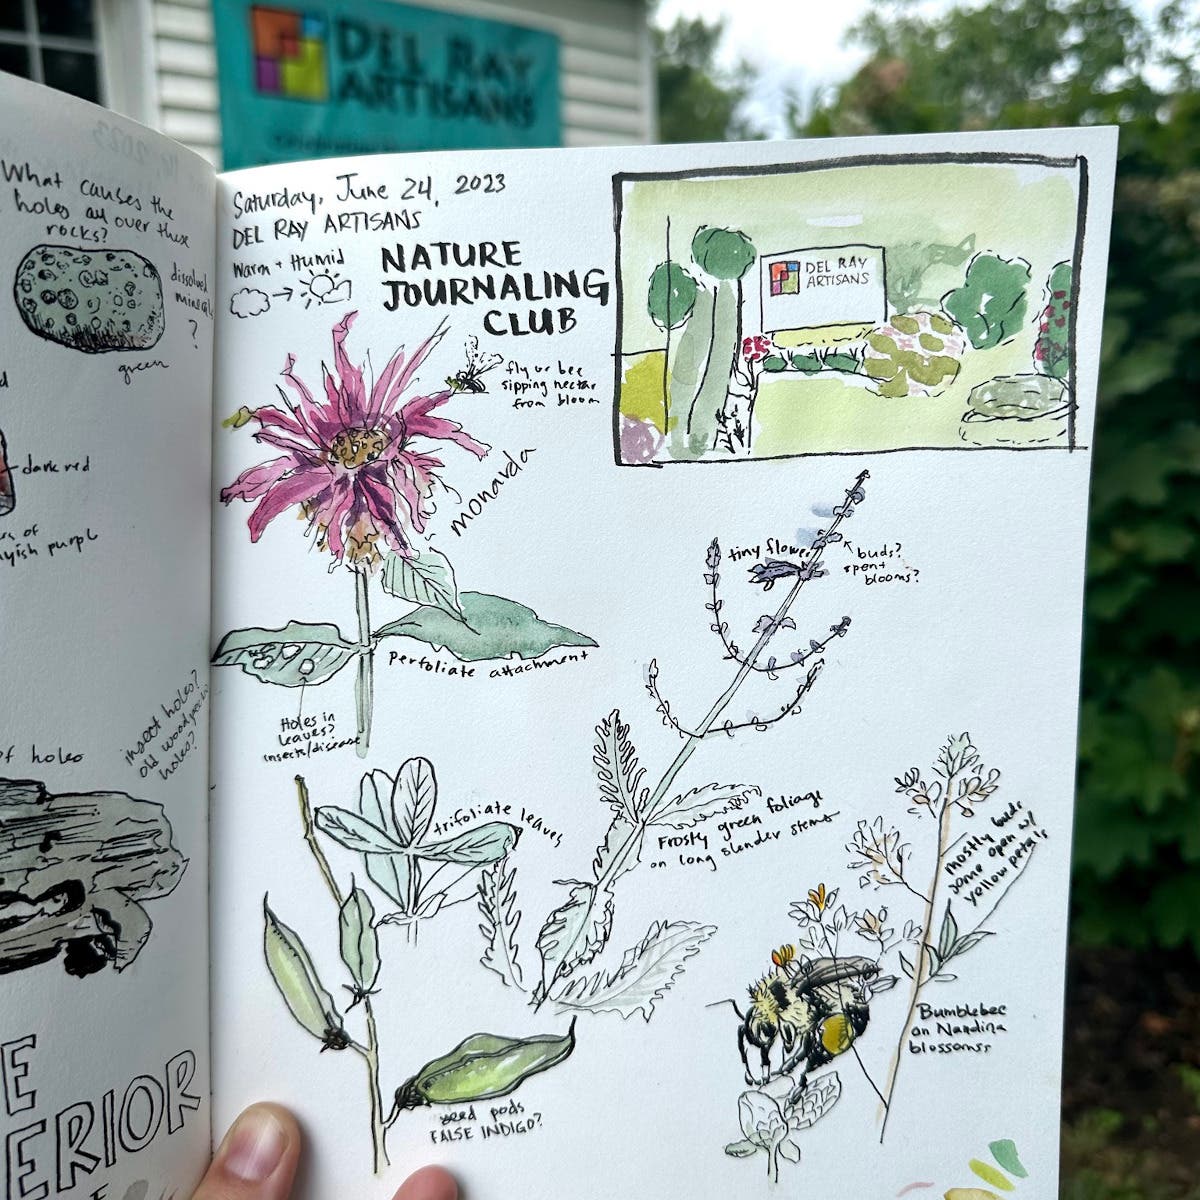 DEL RAY
ARTISANS
What causes the
holes all over these
rocks?
dissolved
minerals
?
green
dark red
of
purpl
insect holes?
old woodpecker
holes?
of holes
E
ERIOR
Saturday, June 24, 2023
DEL RAY ARTISANS
Warm + Humid
NATURE
JOURNALING
CLUB
DEL RAY
ARTISANS
fly or bee
sipping nectar
from bloom
monarda
perfoliate attachment
Holes in
leaves?
insects/disease
tiny flower
buds?
spent
blooms?
trifoliate leaves
Frosty green foliage
on long slender stems
mostly buds
some open w/
yellow petals
Bumblebee
on Nandina
blossoms.
seed pods
FALSE INDIGO?